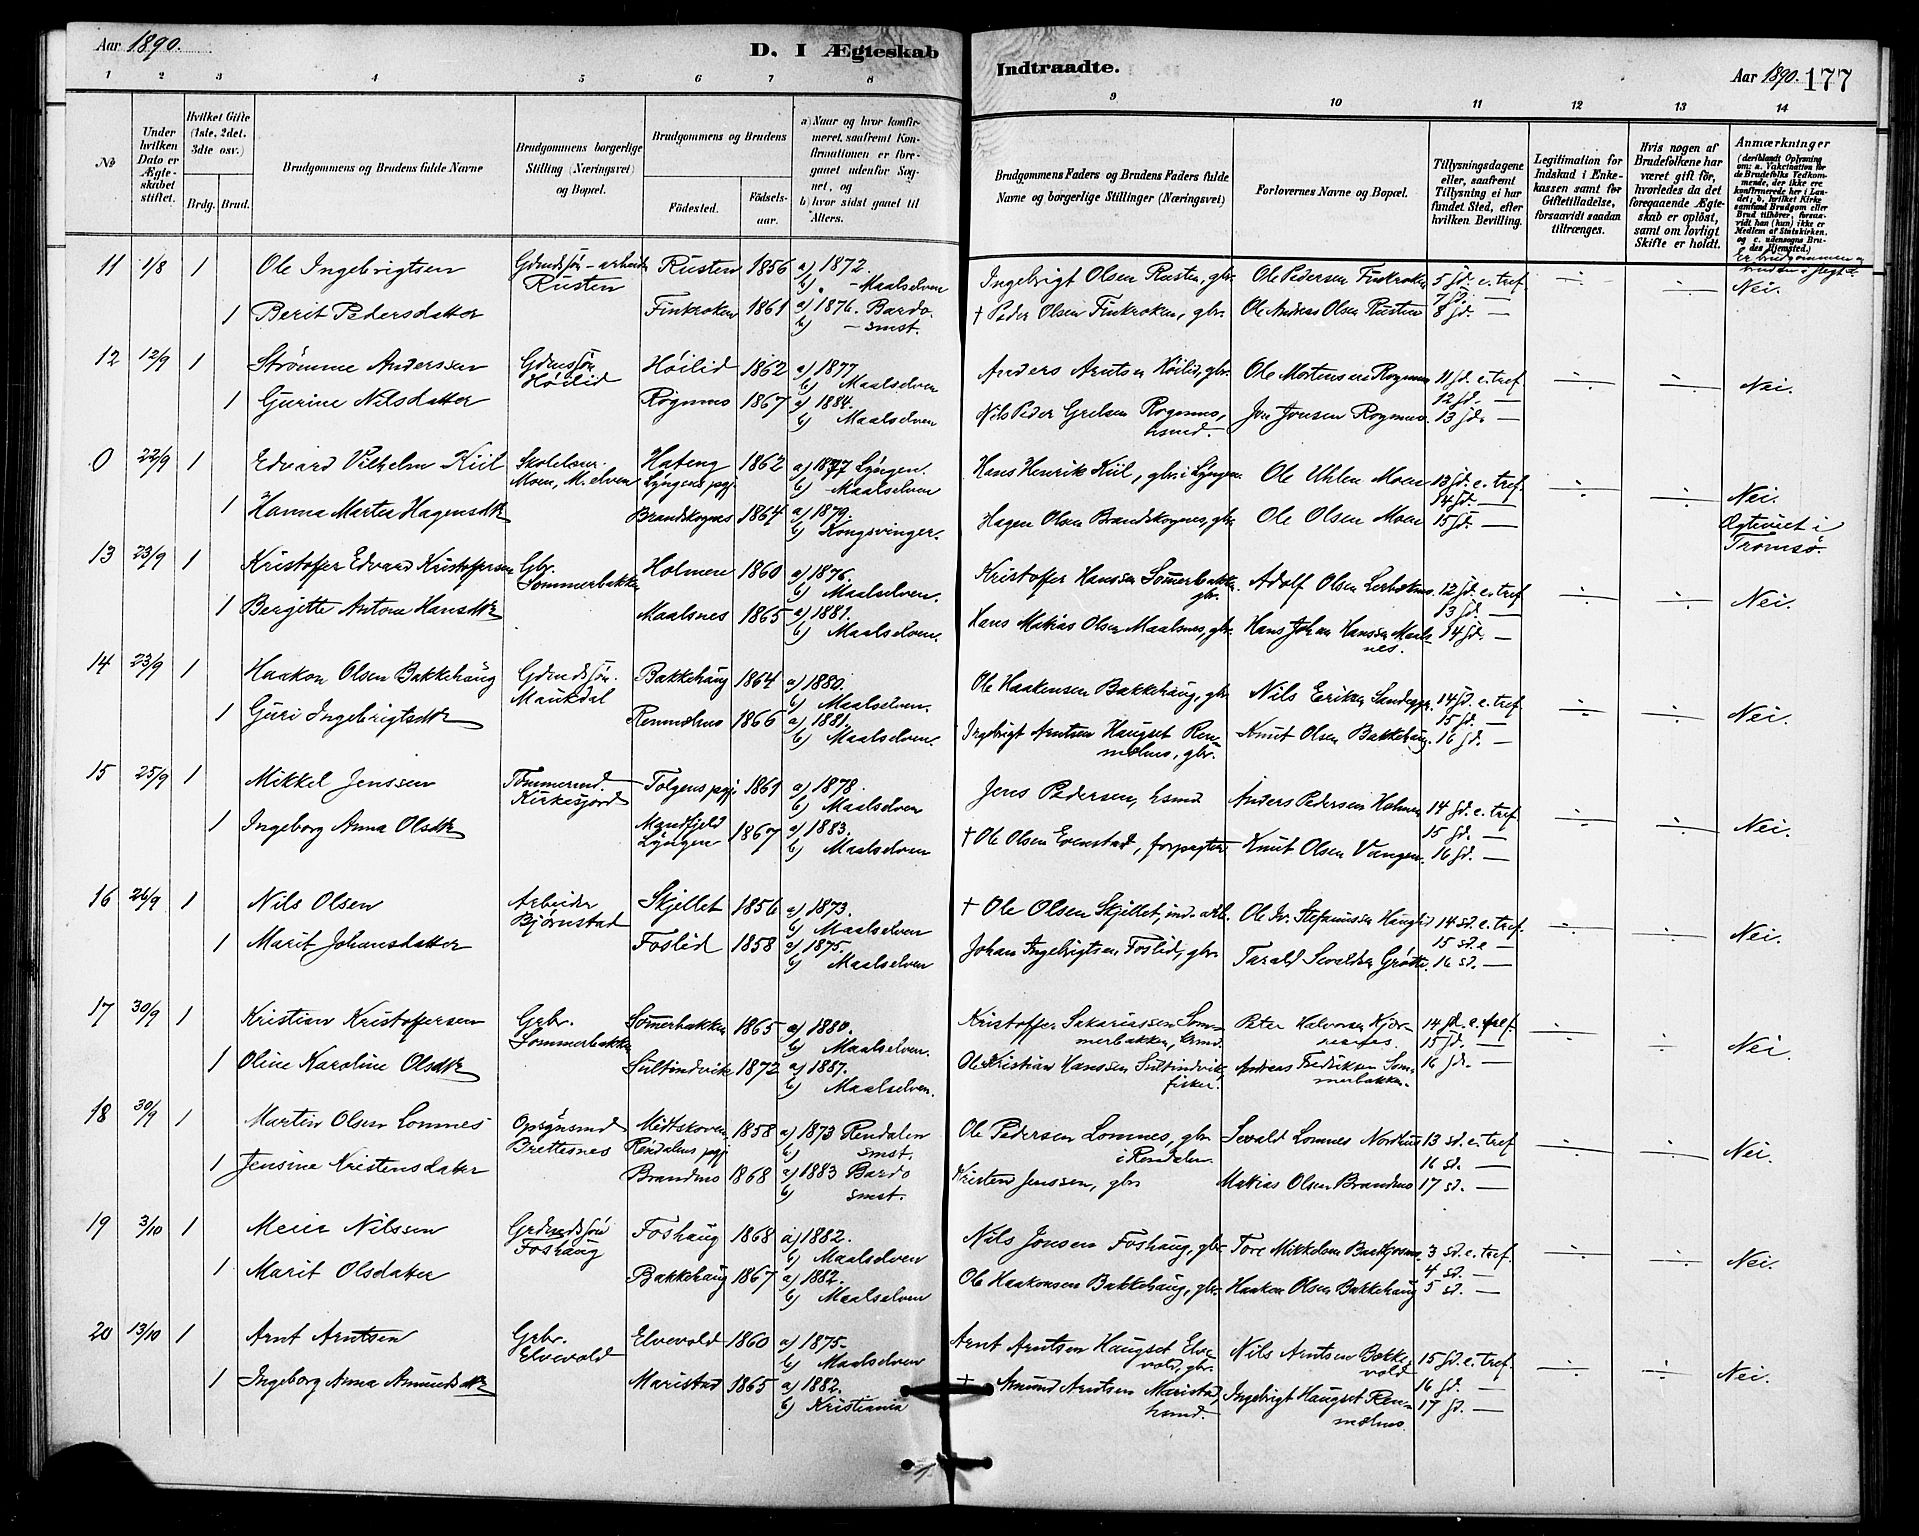 Aar 1890.
D. I Ægteskab
Indtraadte.
Aar 1890. 177
1 2 3 4 5 6 7 8 9 10 11 12 13 14
No
Under hvilken Dato er Ægteskabet stiftet.
Hvilket Gifte (1ste, 2det. 3die osv.)
Brdg. Brud.
Brudgommens og Brudens fulde Navne
Brudgommens borgerlige Stilling (Næringsvei) og Bopæl.
Brudgommens og Brudens
Fødested.
Fødsels-aar.
a) Naar og hvor konfirmeret, saafremt Konfirmationen er foregaaet udenfor Sognet, og
b) hvor sidst gaaet til Alters.
Brudgommens Faders og Brudens Faders fulde Navne og borgerlige Stillinger (Næringsvei)
Forlovernes Navne og Bopæl.
Tillysningsdagene eller, saafremt Tillysning ei har fundet Sted, efter hvilken Bevilling.
Legitimation for Indskud i Enkekassen samt for Giftetilladelse, forsaavidt saadan tiltrænges.
Hvis nogen af Brudefolkene har været gift før, hvorledes da det foregaaende Ægteskab er opløst, samt om lovligt Skifte er holdt.
Anmærkninger
(deriblandt Oplysning om: a. Vakcination for de Brudefolks Vedkommende, der ikke ere konfirmerede her i Landet; b. hvilket Kirkesamfund Brudgom eller Brud tilhører, forsaavidt han (hun) ikke er Medlem af Statskirken, og c. udensogns Brudes Hjemsted.)
Er brudgommen og bruden i slegt?
11 1/8 1 Ole Ingebrigtsen Gdmdsjøn - arbeider Rusten Rusten 1856 a) 1872. b) - Maalselven Ingebrigt Olsen Rusten, gbr. Ole Pedersen Finkroken 5 sd. e. tref. Nei.
1 Berit Pedersdatter Finkroken 1861 a) 1876. Bardo. b) - smst. † Peder Olsen Finkroken, gbr. Ole Andreas Olsen Rusten 7 sd. — 8 sd. —
12 12/9 1 Strømme Anderssen Gdmdssøn Høilid Høilid 1862 a) 1877 b) Maalselven Anders Arntsen Høilid, gbr. Ole Mortensen Rognmo 11 sd. e. tref. Nei.
1 Gurine Nilsdatter Rognmo 1867 a) 1884. b) Maalselven Nils Peder Rognmo, husmd. Jon Jonsen Rognmo. 12 sd. — 13 sd. —
0 22/9 1 Edvard Vilhelm Kiil Skolelær. Moen, M.elven Hateng Lyngens pgj. 1862 a) 1877 Lyngen. b) Maalselven Hans Henrik Kiil, gbr. i Lyngen Ole Uhlen Moen 13 sd. e. tref. Nei.
1 Hanna Martea Hagensdtr Brandskognes 1864 a) 1879. b) Kongsvinger. Hagen Olsen Brandskognes, gbr. Ole Olsen Moen 14 sd. — 15 sd. — Ægteviet i Tromsø.
13 23/9 1 Kristoffer Edvard Kristoffersen Gbr. Sommerbakken Holmen 1860 a) 1876. b) Maalselven. Kristoffer Hanssen Sommerbakken gbr. Adolf Olsen 12 sd. e. tref. Nei.
1 Bergitte Antona Hansdtr Maalsnes 1865 a) 1881. b) Maalselven. Hans Matias Olsen Maalsnes, gbr. Hans Johan Hanssen Maalsnes. 13 sd. — 14 sd. —
14 23/9 1 Haakon Olsen Bakkehaug Gdmdssøn. Maukdal Bakkehaug 1864 a) 1880. b) Maalselven. Ole Haakensen Bakkehaug, gbr. Nils Eriksen 14 sd. e. tref. Nei.
1 Guri Ingebrigtsdtr Rennælmo 1866 a) 1881. b) Maalselven. Ingebrigt Arntsen Haugset Rennælmo, gbr. Knut Olsen Bakkehaug. 15 sd. — 16 sd. —
15 25/9 1 Mikkel Jenssen Tømmermd. Kirkesjord Tolgens pgj. 1861 a) 1878. b) Maalselven Jens Pedersen, husmd Anders Pedersen Holmen 14 sd. e. tref. Nei.
1 Ingeborg Anna Olsdtr Mandfjeld Lyngen 1867 a) 1883. b) Maalselven † Ole Olsen Evenstad, forpagter Knut Olsen Vangen. 15 sd. — 16 sd. —
16 26/9 1 Nils Olsen Arbeider Bjørnstad Skjellet 1856 a) 1873. b) Maalselven † Ole Olsen Skjellet, ind. arb. Ole Stefanussen Hauglid 14 sd. e. tref. Nei.
1 Marit Johansdatter Foslid 1858 a) 1875. b) Maalselven Johan Ingebrigtsen Foslid, gbr. Tarald Sevaldsen Grøtte 15 sd. e — 16 sd. —
17 30/9 1 Kristian Kristoffersen Grbr. Sommerbakken Sommerbakken 1865 a) 1880. b) Maalselven. Kristoffer Sakariassen Sommerbakken, husmd. Peter Halvorsen 14 sd. e. tref. Nei.
1 Oline Karoline Olsdtr Sultindvik 1872 a) 1887. b) Maalselven. Ole Kristian Hanssen Sultindvik fisker. Andreas Fredriksen Sommerbakken. 15 sd. — 16 sd. —
18 30/9 1 Martin Olsen Lomnes Opsynsmd Brettesnes Midtskoven Rendalens pgj. 1858 a) 1873 Rendalen b) smst. Ole Pedersen Lomnes, gbr. i Rendalen. Sevald Lomnes Nordmo 13 sd. e. tref Nei.
1 Jensine Kristensdater Brandmo 1868 a) 1883 Bardo b) smst. Kristen Jenssen, gbr. Matias Olsen Brandmo 16 sd. — 17 sd. —
19 3/10 1 Meier Nilssen Grdmdssøn Foshaug Foshaug 1868 a) 1882. b) Maalselven Nils Jonsen Foshaug, gbr. Tore Mikkelsen 3 sd. e. tref. Nei.
1 Marit Olsdater Bakkehaug 1867 a) 1882. b) Maalselven Ole Haakonsen Bakkehaug, gbr. Haakon Olsen Bakkehaug 4 sd. — 5 sd. —
20 13/10 1 Arnt Arntsen Grbr. Elvevold Elvevold 1860 a) 1875. b) Maalselven Arnt Arntsen Haugset Elvevold, gbr. Nils Arntsen Bakkevold 15 sd. e. tref. Nei.
1 Ingeborg Anna Amundsdtr Maristad 1865 a) 1882. b) Kristiania † Amund Arntsen Maristad, husmd. Ingebrigt Haugset Rennælmo. 16 sd. — 17 sd. —